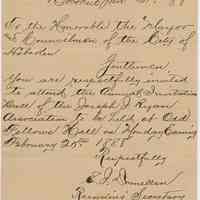 To the Honorable the Mayor
& Councilmen of the City of
Hoboken
Gentlemen
You are respectfully invited
to attend the Annual Invitation
Ball of the Joseph J. Ryan
Association to be held at Odd
Fellows Hall on Monday Evening
February 20th 1888
Respectfully
Recording Secretary